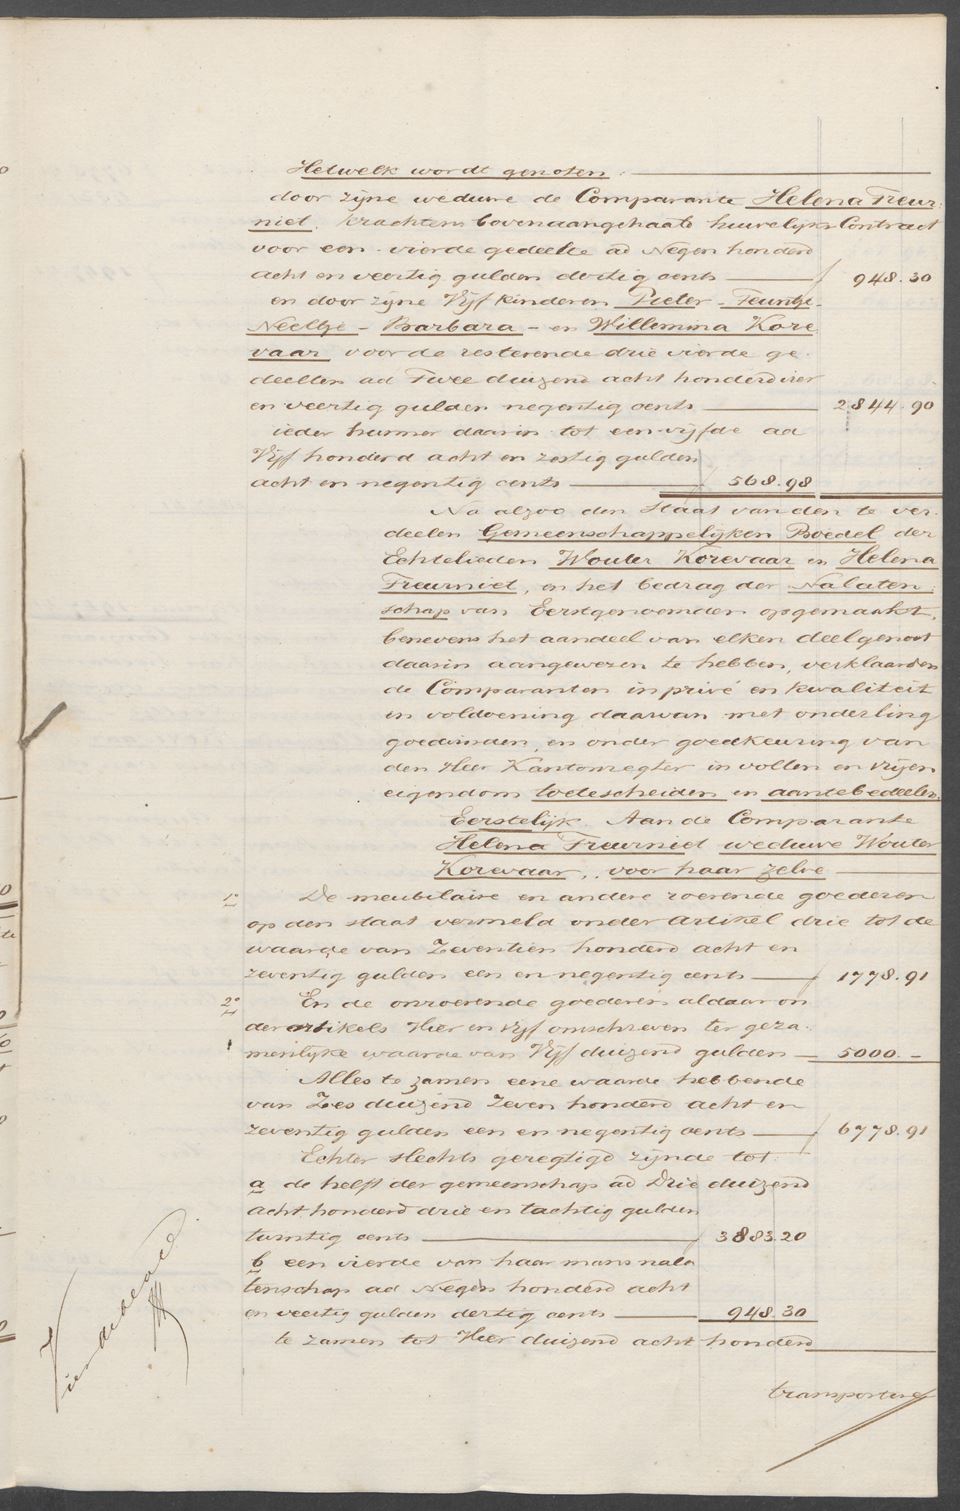 Hetwelk wordt genoten:
door zijne weduwe de Comparante Helena Treur-
niet, krachtens bovenaangehaalde huwelijks Contract
voor een vierde gedeelte ad Negen honderd
acht en veertig gulden dertig cents 948.30
en door zijne Vijf kinderen Pieter - Teuntje -
Neeltje - Barbara - en Willemina Kore
vaar voor de resterende drie vierde ge-
deelten ad Twee duizend acht honderd vier
en veertig gulden negentig cents 2844.90
ieder hunner daarin tot een vijfde ad
Vijf honderd acht en zestig gulden
acht en negentig cents 568.98
Na alzoo den Staat van den te ver-
deelen Gemeenschappelijken Boedel der
Echtelieden Wouter Korevaar en Helena
Treurniet, en het bedrag der Nalaten-
schap van Eerstgenoemden opgemaakt,
benevens het aandeel van elken deelgenoot
daarin aangewezen te hebben, verklaarden
de Comparanten in privé en kwaliteit
in voldoening daarvan met onderling
goedvinden, en onder goedkeuring van
den Heer Kantonregter in vollen en vrijen
eigendom toetescheiden en aantebedeelen,
Eerstelijk. Aan de Comparante
Helena Treurniet weduwe Wouter
Korevaar, voor haar zelve
1º De meubilaire en andere roerende goederen
op den staat vermeld onder artikel drie tot de
waarde van Zeventien honderd acht en
zeventig gulden een en negentig cents 1778.91
2º En de onroerende goederen aldaar on
der artikels Vier en Vijf omschreven ter geza-
menlijke waarde van Vijf duizend gulden 5000.-
Alles te zamen eene waarde hebbende
van Zes duizend Zeven honderd acht en
zeventig gulden een en negentig cents 6778.91
Echter slechts geregtigd zijnde tot:
a de helft der gemeenschap ad Drie duizend
acht honderd drie en tachtig gulden
twintig cents 3883.20
b een vierde van haar mans nala
tenschap ad Negen honderd acht
en veertig gulden dertig cents 948.30
te zamen tot Vier duizend acht honderd
transportere